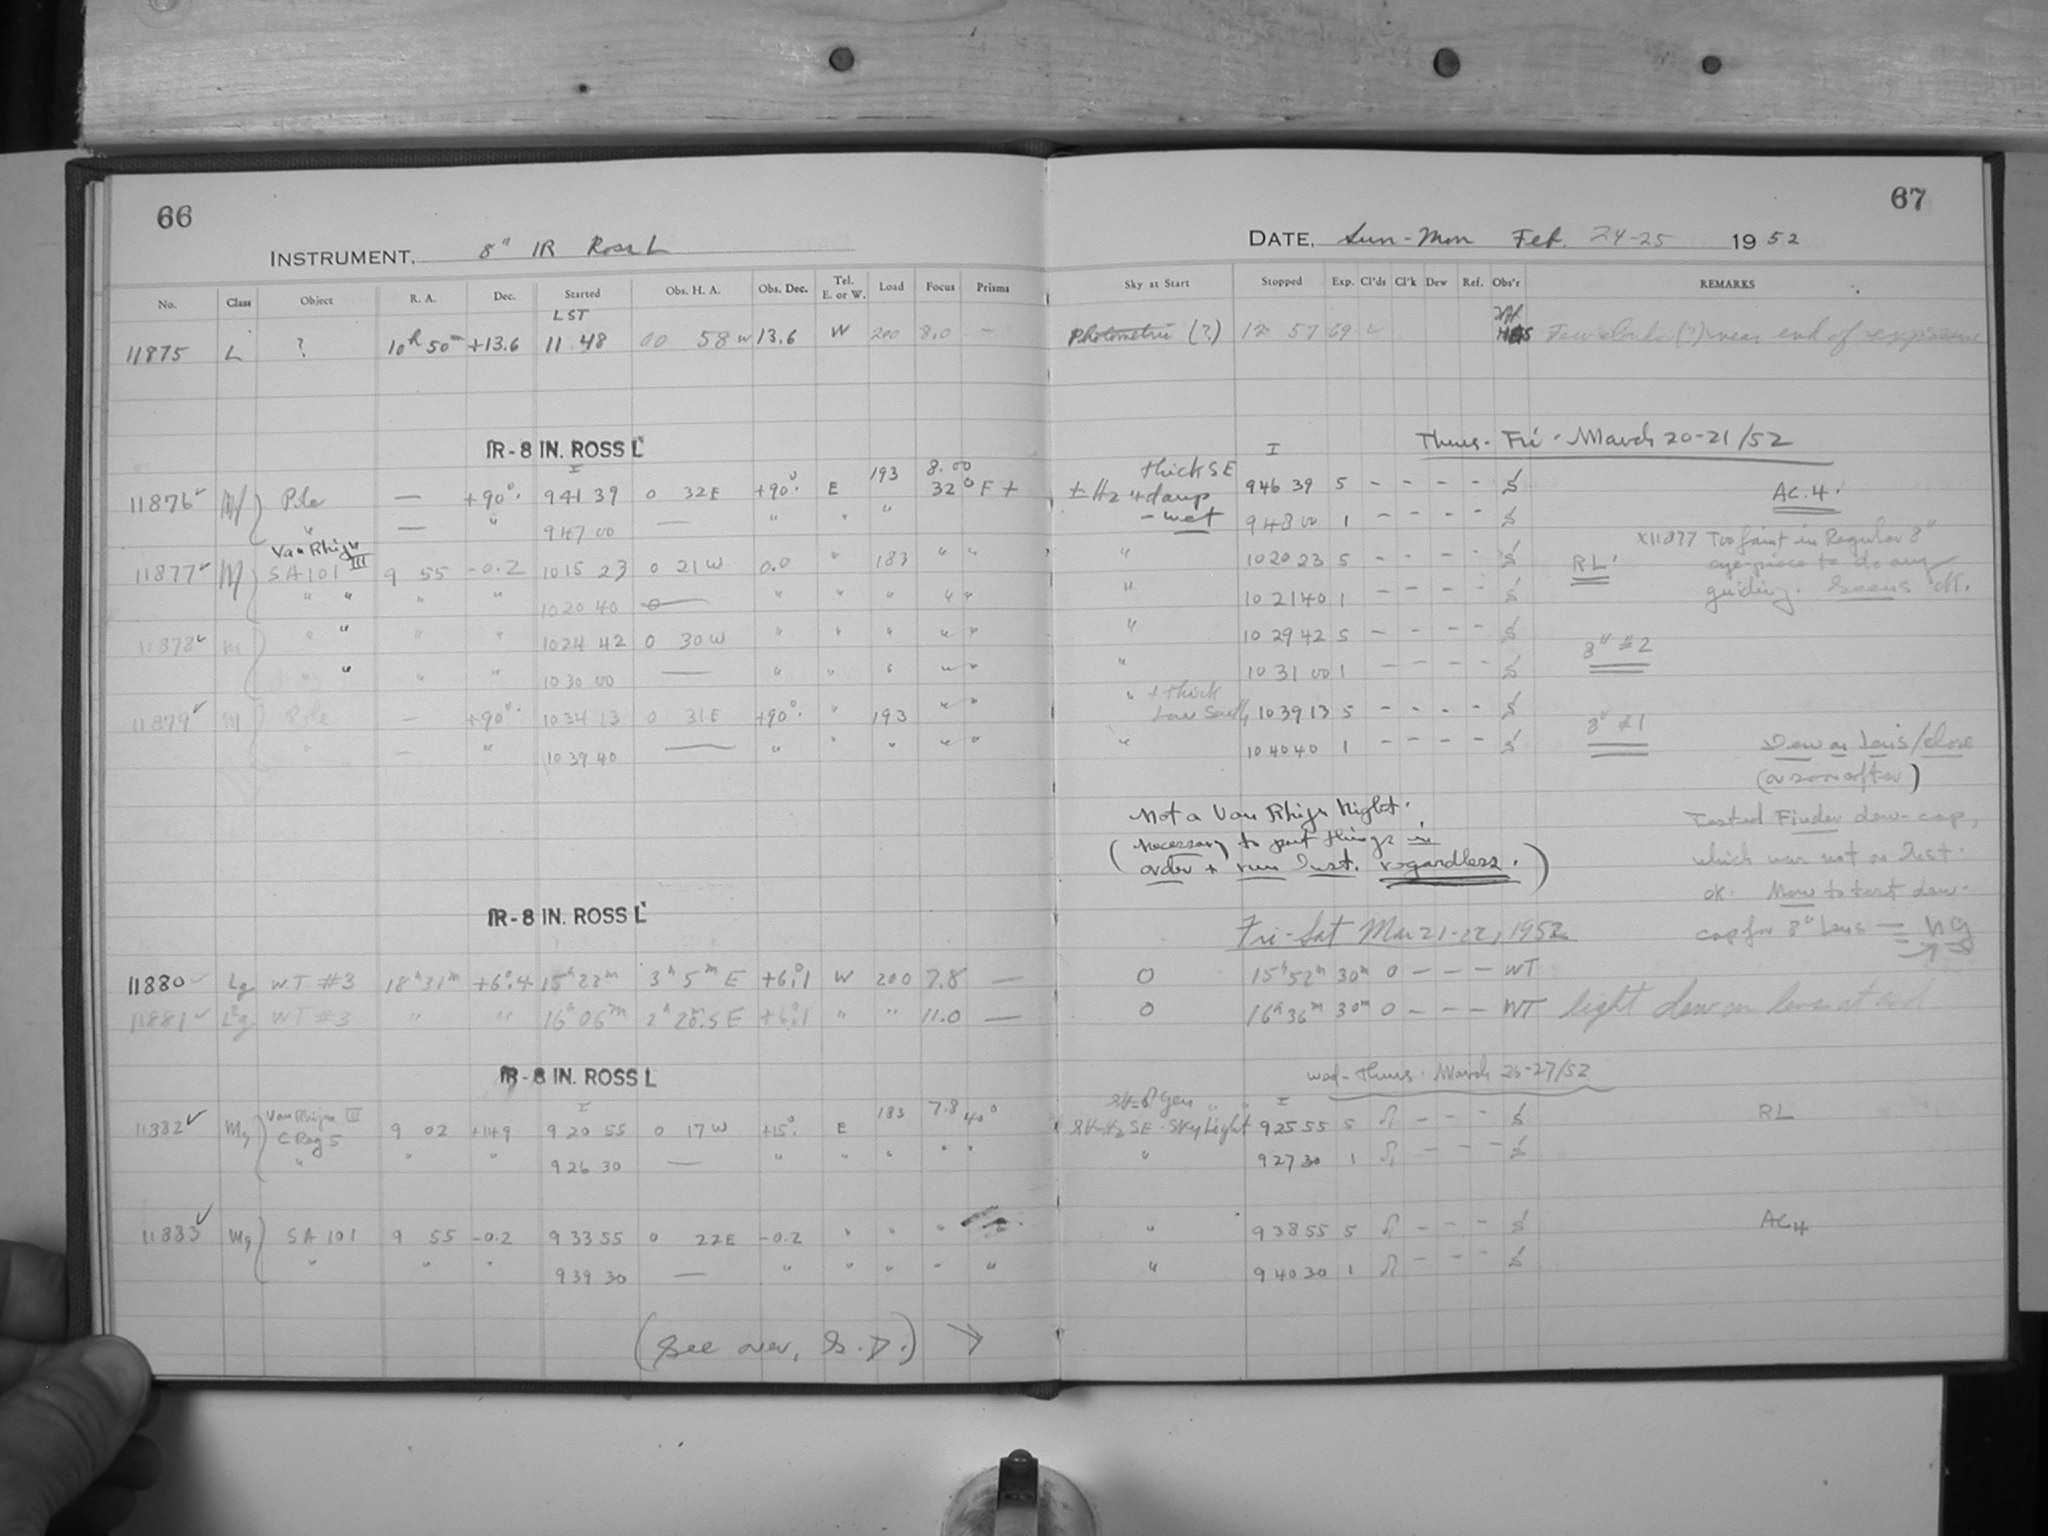 66
INSTRUMENT, 8" IR Ross L
No. Class Object R. A. Dec. Started Obs. H. A. Obs. Dec. Tel. E. or W. Load Focus Prisms
LST
11875 L ? 10h 50m +13.6 11 48 00 58 W 13.6 W 200 8.0 —
IR-8 IN. ROSS L
I
11876 Pole — +90°. 9 41 39 0 32 E +90°. E 193 8.00 32° F +
" — " 9 47 00 — " " "
Van Rhijn III
11877 SA 101 9 55 -0.2 10 15 23 0 21 W 0.0 " 183 " "
" " " " 10 20 40 — " " " " "
11878 M " " " " 10 24 42 0 30 W " " " " "
" " " 10 30 00 — " " " " "
11879 M Pole — +90°. 10 34 13 0 31 E +90°. " 193 " "
" — " 10 39 40 — " " " " "
IR-8 IN. ROSS L
11880 Lg WT #3 18h 31m +6°.4 15h 22m 3h 5m E +6°.1 W 200 7.8 —
11881 WT #3 " " 16h 06m 2h 20m.5 E +6°.1 " " 11.0 —
IR-8 IN. ROSS L
I
11882 Mg Van Rhijn III C Reg 5 9 02 +14.9 9 20 55 0 17 W +15°. E 183 7.8 40°
" " " 9 26 30 — " " " " "
11883 Mg SA 101 9 55 -0.2 9 33 55 0 22 E -0.2 " " "
" " " 9 39 30 — " " " " "
(See over, S.D.) →
67
DATE, Sun-Mon Feb. 24-25 1952
Sky at Start Stopped Exp. Cl'ds Cl'k Dew Ref. Obs'r REMARKS
Photometric (?) 12 57 69 Few clouds (?) near end of exposure
Thurs-Fri. March 20-21/52
I
thick SE
± H2 + damp 9 46 39 5 - - - - S AC.4.
- wet 9 48 00 1 - - - - S
" 10 20 23 5 - - - - S RL.
X11877 Too faint in Regular 8"
eye-piece to do any
guiding. Seems OK.
" 10 21 40 1 - - - - S
" 10 29 42 5 - - - - S 8" #2
" 10 31 00 1 - - - - S
" + thick
Low South 10 39 13 5 - - - - S 8" #1
" 10 40 40 1 - - - - S
Dew on Lens/close
(or soon after)
Not a Van Rhijn Night.
(Necessary to put things in
order + run Inst. regardless.)
Tested Finder dew-cap,
which was not on Inst.
OK. Now to test dew-
cap for 8" Lens — ng
Fri-Sat Mar 21-22, 1952
0 15h 52m 30m 0 - - - WT
0 16h 36m 30m 0 - - - WT light dew on lens at end
Wed-Thurs. March 26-27/52
I
SE. Sky Light 9 25 55 5 - - - S RL
" 9 27 30 1 - - - S
" 9 38 55 5 - - - S AC4
" 9 40 30 1 - - - S